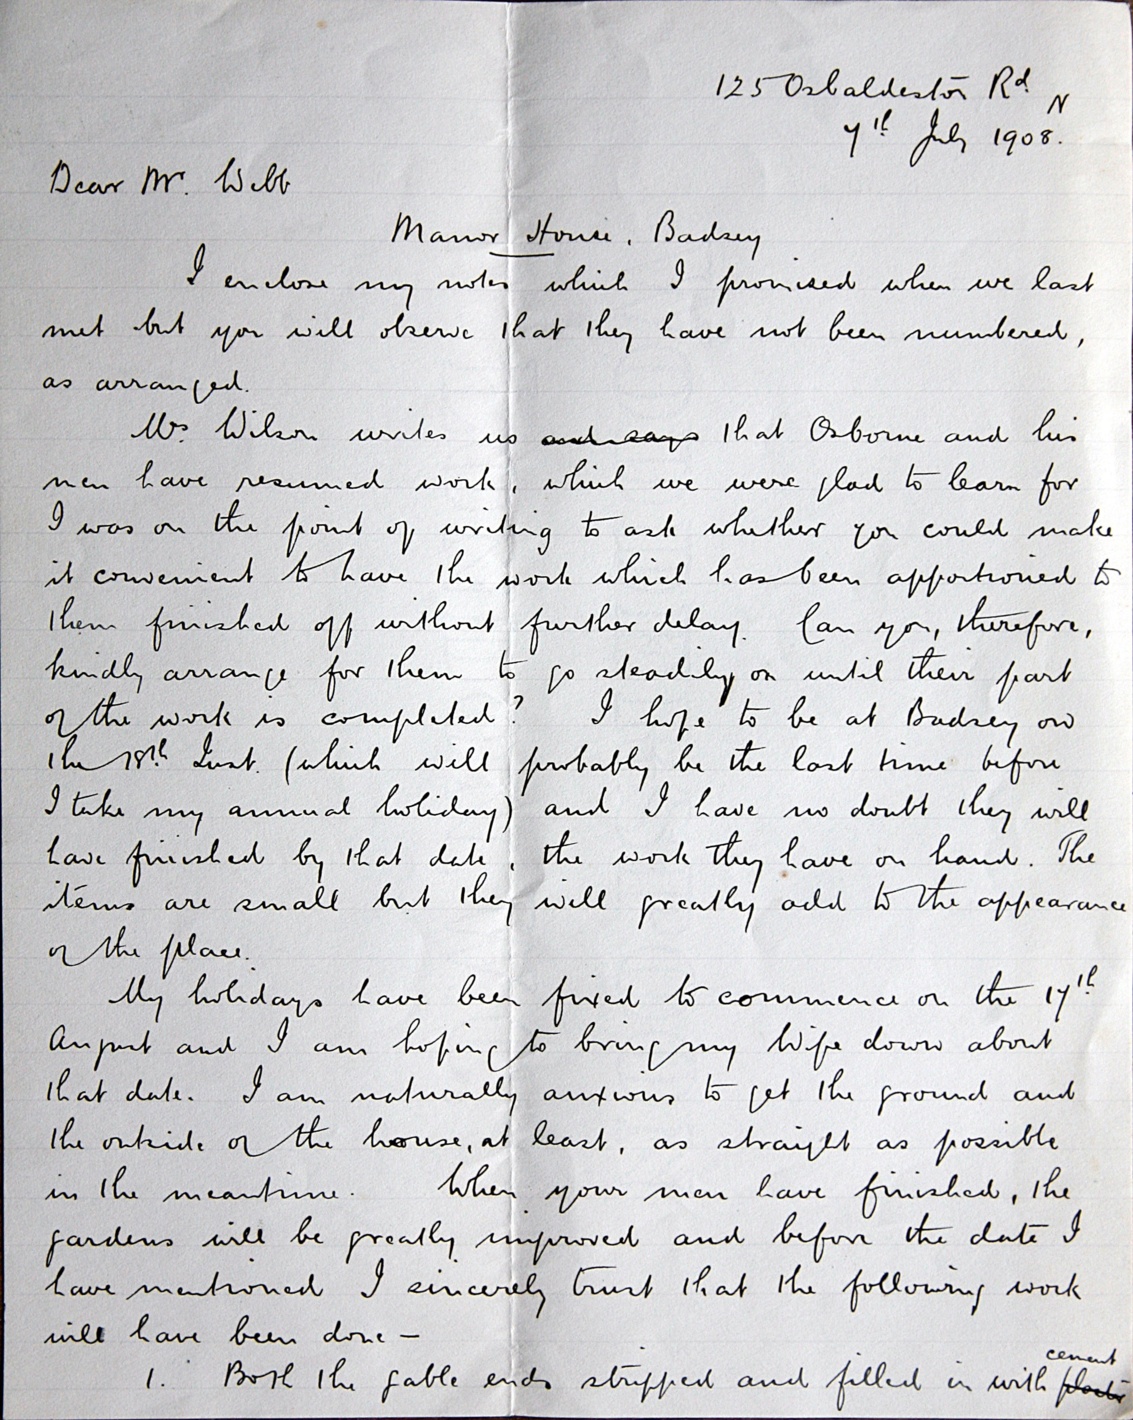 125 Osbaldeston Rd. N
7th July 1908.
Dear Mr. Webb
Manor House, Badsey
I enclose my notes which I promised when we last
met but you will observe that they have not been numbered,
as arranged.
Mrs. Wilson writes us and says that Osborne and his
men have resumed work, which we were glad to learn for
I was on the point of writing to ask whether you could make
it convenient to have the work which has been apportioned to
them finished off without further delay. Can you, therefore,
kindly arrange for them to go steadily on until their part
of the work is completed? I hope to be at Badsey on
the 18th Inst. (which will probably be the last time before
I take my annual holiday) and I have no doubt they will
have finished by that date, the work they have on hand. The
items are small but they will greatly add to the appearance
of the place.
My holidays have been fixed to commence on the 17th
August and I am hoping to bring my Wife down about
that date. I am naturally anxious to get the ground and
the outside of the house, at least, as straight as possible
in the meantime. When your men have finished, the
gardens will be greatly improved and before the date I
have mentioned I sincerely trust that the following work
will have been done —
1. Both the gable ends stripped and filled in with cement